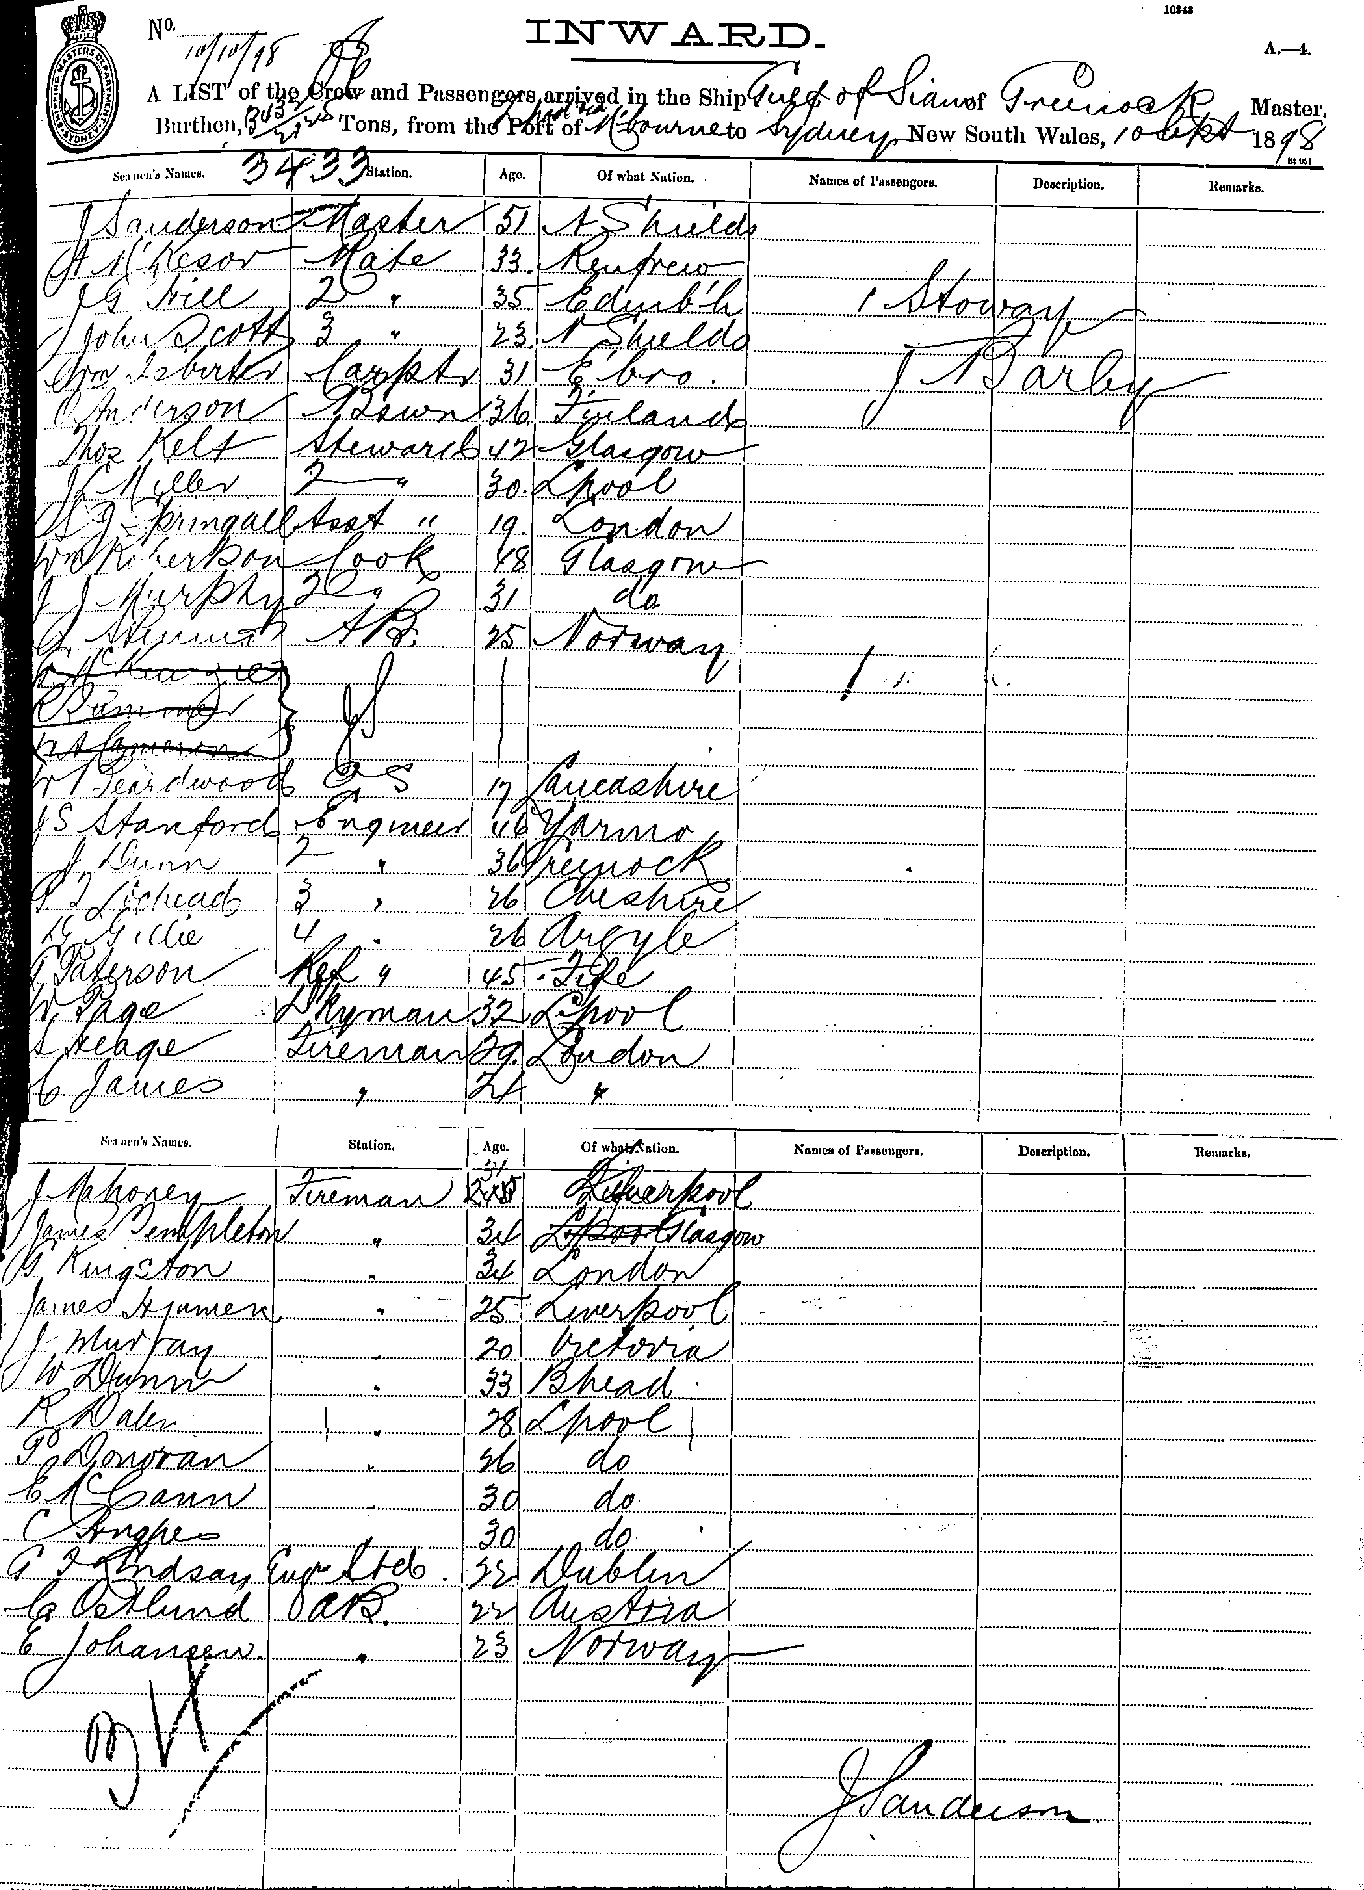 10343
No.
10/10/98
INWARD.
A.—4.
A LIST of the Crew and Passengers arrived in the Ship Gulf of Siam of Greenock Master,
Burthen, Tons, from the Port of London M'bourne to Sydney, New South Wales, 10 Octr 1898
3433
Seamen's Names. Station. Age. Of what Nation. Names of Passengers. Description. Remarks.
J Sanderson Master 51 N Shields
Mate 33 Renfrew
J G Hill 2 " 35 Edinb'h 1 Stoway
John Scott 3 " 23 N Shields
Wm Carptr 31 E'bro. J Barby
Anderson Bswn 36 Finland
Thos Kelt Steward 42 Glasgow
J Miller 2 " 30 Lpool
Springall Asst " 19 London
Wm Robertson Cook 48 Glasgow
J J Murphy 2 " 31 do
AB. 25 Norway
McKenzie
JS
Cameron
W Beardwood OS 17 Lancashire
J S Stanford Engineer 46 Yarmo
J. Dunn 2 " 36 Greenock
Lochead 3 " 26 Cheshire
D. Gillie 4 " 26 Argyle
Paterson Ref " 45 Fife
W. Page Dkyman 32 Lpool
Heage Fireman 29. London
C. James " 24 "
Seamen's Names. Station. Age. Of what Nation. Names of Passengers. Description. Remarks.
J Mahoney Fireman 34 Liverpool
James Templeton " 34 Lpool Glasgow
Kingston " 34 London
James Hjamen " 25 Liverpool
J Murray " 20 Victoria
W Dunn " 33 Bhead
R Daley " 28 Lpool
P Donovan " 26 do
E McCann " 30 do
C Hughes 30 do
Lindsay Engrs Std 22 Dublin
Ostlund AB. 22 Austria
E Johansen " 23 Norway
J Sanderson